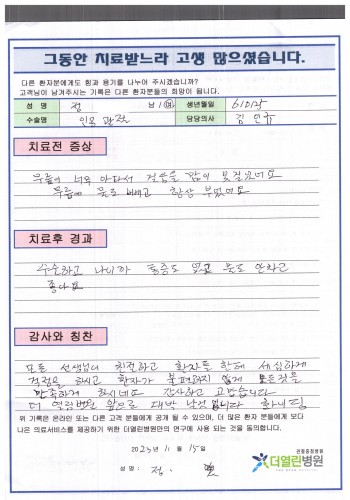 그동안 치료받느라 고생 많으셨습니다.
다른 환자분에게도 힘과 용기를 나누어 주시겠습니까?
고객님이 남겨주시는 기록은 다른 환자분들의 희망이 됩니다.
성 명 정 남 / 여 생년월일
수술명 인공관절 담당의사 김민규
치료전 증상
무릎이 너무 아파서 걸음을 많이 못걸었어요
무릎에 물도 빼내고 항상 부었어요
치료후 경과
수술하고 나니까 통증도 없고 물도 안차고
좋아요
감사와 칭찬
모든 선생님이 친절하고 환자들 한테 세심하게
걱정을 하시고 환자가 불편하지 않게 모든것을
만족하게 하시네요 감사하고 고맙습니다
더 열린병원 앞으로 대박 날것입니다 화이팅
위 기록은 온라인 또는 다른 고객 분들에게 공개 될 수 있으며, 더 많은 환자 분들에게 보다
나은 의료서비스를 제공하기 위한 더열린병원만의 연구에 사용 되는 것을 동의합니다.
2023 11월 15일
성 명 : 정.
관절중점병원
더열린병원